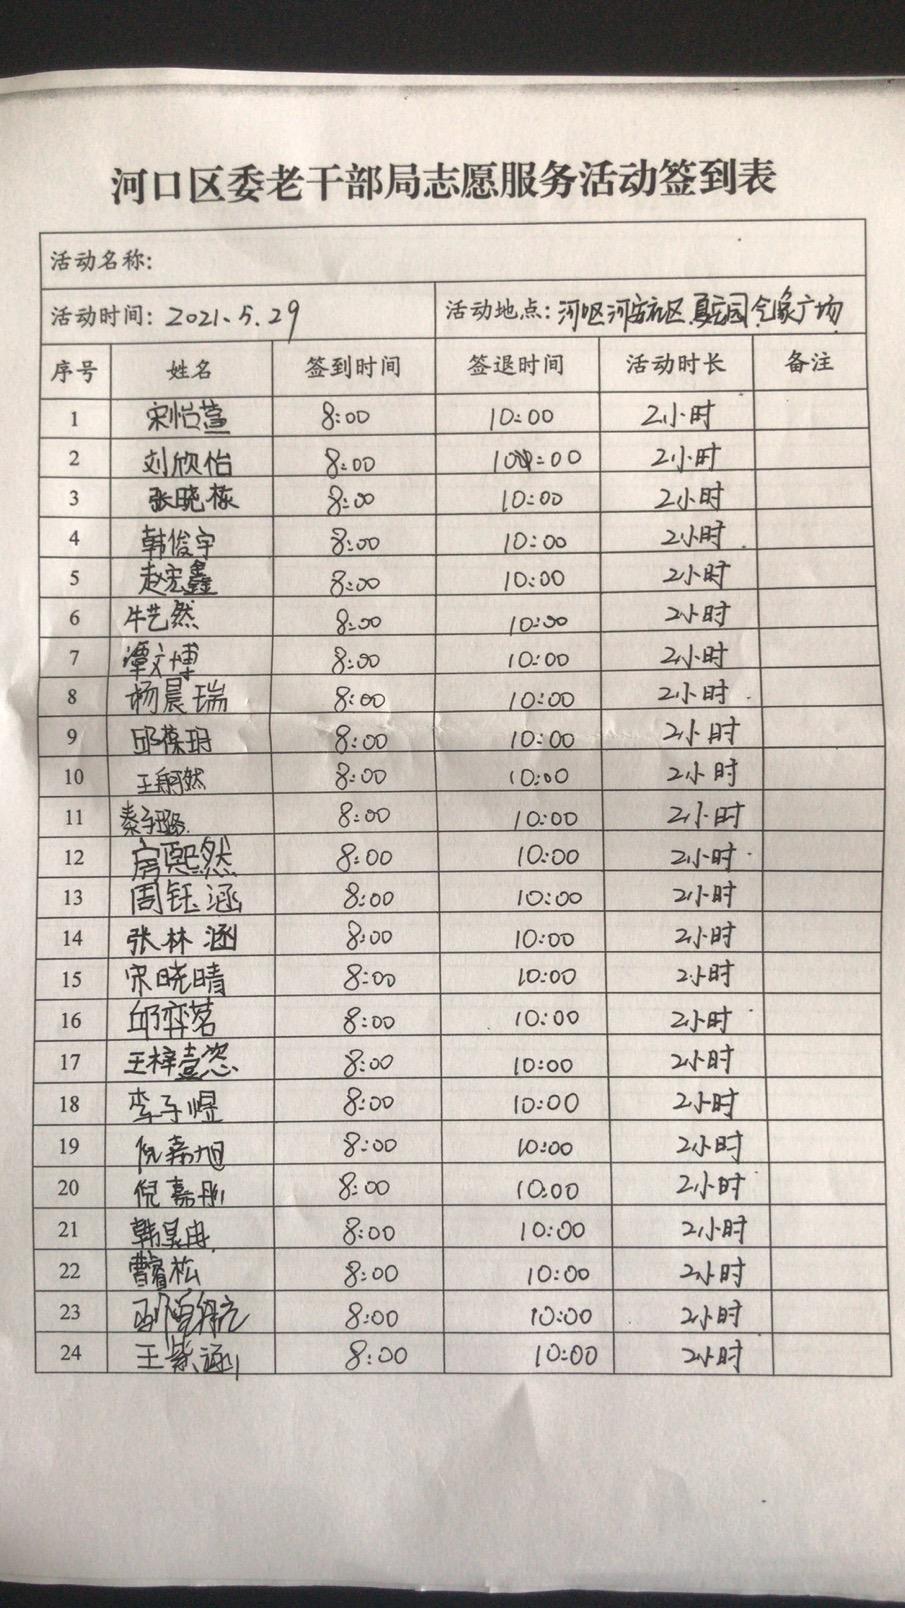 河口区委老干部局志愿服务活动签到表
活动名称:
活动时间: 2021.5.29 活动地点: 河口区河安社区 广场
序号 姓名 签到时间 签退时间 活动时长 备注
1 宋怡萱 8:00 10:00 2小时
2 刘欣怡 8:00 10:00 2小时
3 张晓栋 8:00 10:00 2小时
4 韩俊宇 8:00 10:00 2小时
5 赵宏鑫 8:00 10:00 2小时
6 牛艺然 8:00 10:00 2小时
7 谭文博 8:00 10:00 2小时
8 杨晨瑞 8:00 10:00 2小时
9 邱葆玥 8:00 10:00 2小时
10 8:00 10:00 2小时
11 8:00 10:00 2小时
12 房熙然 8:00 10:00 2小时
13 周钰涵 8:00 10:00 2小时
14 张林涵 8:00 10:00 2小时
15 宋晓晴 8:00 10:00 2小时
16 邱弈茗 8:00 10:00 2小时
17 王梓壹恣 8:00 10:00 2小时
18 李子煜 8:00 10:00 2小时
19 倪嘉旭 8:00 10:00 2小时
20 倪嘉彤 8:00 10:00 2小时
21 韩昊冉 8:00 10:00 2小时
22 8:00 10:00 2小时
23 8:00 10:00 2小时
24 王紫涵 8:00 10:00 2小时